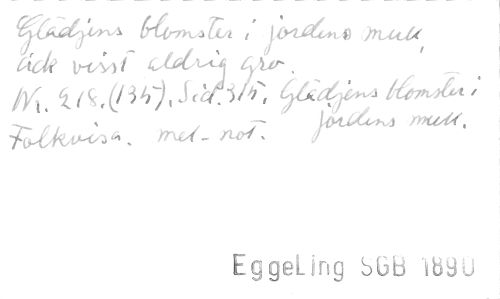 Glädjens blomster i jordens mull,
ack visst aldrig gro.
Nr. 218. (135). Sid. 315. Glädjens blomster i
jordens mull.
Folkvisa. mel-not.
Eggeling SGB 1890